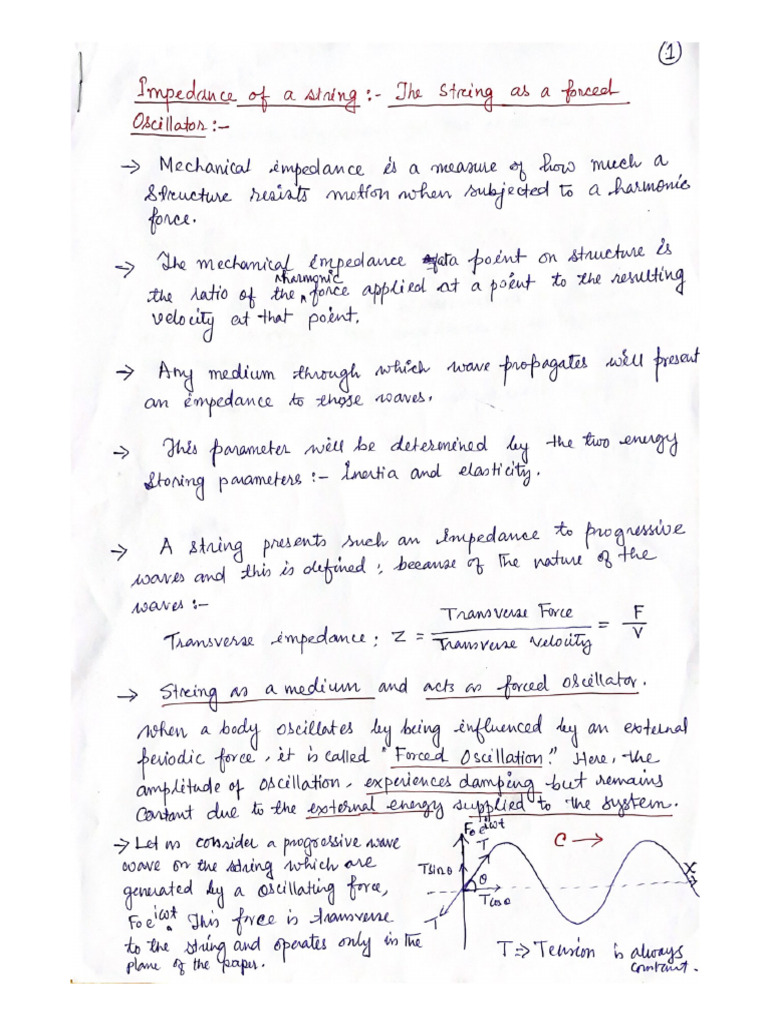 (1)
Impedance of a string :- The String as a forced
Oscillator :-
→ Mechanical impedance is a measure of how much a
structure resists motion when subjected to a harmonic
force.
→ The mechanical impedance at a point on structure is
the ratio of the harmonic force applied at a point to the resulting
velocity at that point.
→ Any medium through which wave propagates will present
an impedance to those waves.
→ This parameter will be determined by the two energy
storing parameters :- Inertia and elasticity.
→ A string presents such an impedance to progressive
waves and this is defined ; because of the nature of the
waves :-
Transverse impedance ; Z = Transverse Force / Transverse Velocity = F / V
→ String as a medium and acts as forced oscillator.
When a body oscillates by being influenced by an external
periodic force, it is called "Forced Oscillation." Here, the
amplitude of oscillation, experiences damping but remains
constant due to the external energy supplied to the system.
→ Let us consider a progressive wave
wave on the string which are
generated by a oscillating force,
F₀e^iωt. This force is transverse
to the string and operates only in the
plane of the paper.
F₀e^iωt
T
C →
T sin θ
θ
X
T cos θ
T
T ⇒ Tension is always
constant.